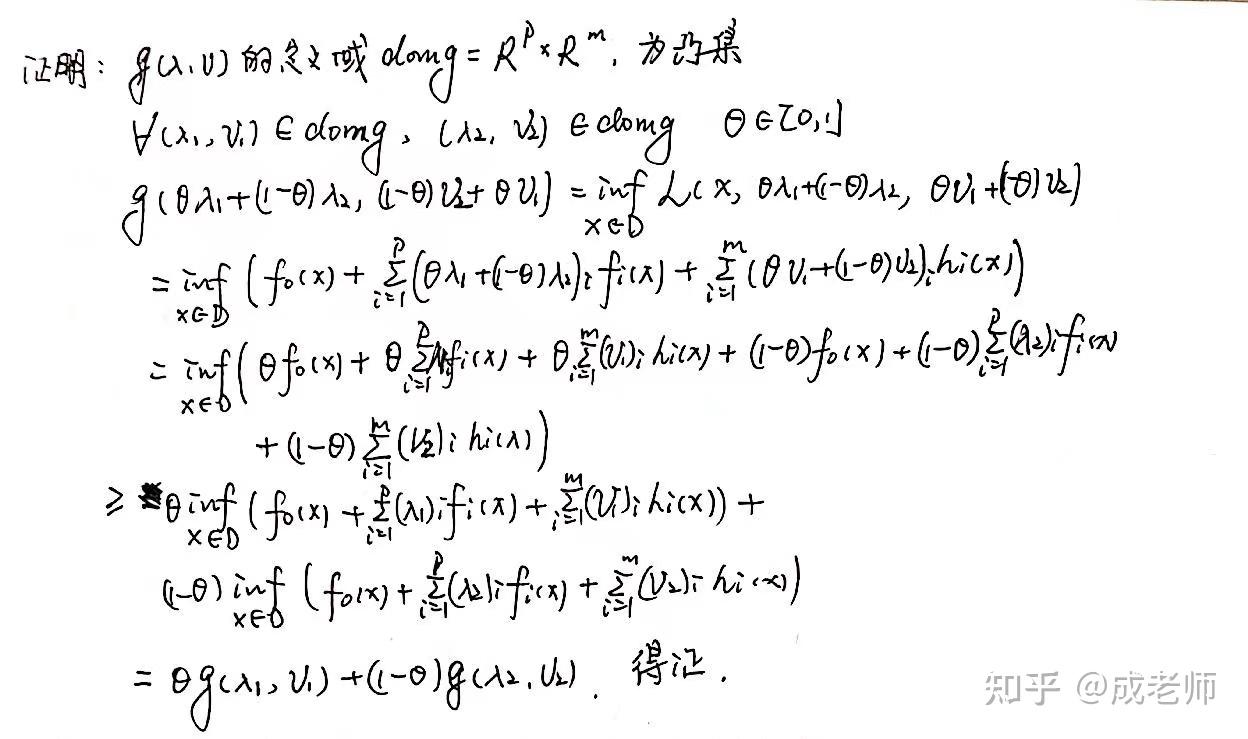 证明: g(λ,υ)的定义域 dom g = R^p × R^m, 为凸集
∀(λ₁,υ₁) ∈ dom g, (λ₂, υ₂) ∈ dom g θ ∈ [0,1]
g(θλ₁+(1-θ)λ₂, (1-θ)υ₂+θυ₁) = inf_{x∈D} L(x, θλ₁+(1-θ)λ₂, θυ₁+(1-θ)υ₂)
= inf_{x∈D} (f₀(x) + Σ_{i=1}^p (θλ₁+(1-θ)λ₂)ᵢ fᵢ(x) + Σ_{i=1}^m (θυ₁+(1-θ)υ₂)ᵢ hᵢ(x))
= inf_{x∈D} (θf₀(x) + θ Σ_{i=1}^p (λ₁)ᵢ fᵢ(x) + θ Σ_{i=1}^m (υ₁)ᵢ hᵢ(x) + (1-θ)f₀(x) + (1-θ) Σ_{i=1}^p (λ₂)ᵢ fᵢ(x)
+ (1-θ) Σ_{i=1}^m (υ₂)ᵢ hᵢ(λ))
≥ θ inf_{x∈D} (f₀(x) + Σ_{i=1}^p (λ₁)ᵢ fᵢ(x) + Σ_{i=1}^m (υ₁)ᵢ hᵢ(x)) +
(1-θ) inf_{x∈D} (f₀(x) + Σ_{i=1}^p (λ₂)ᵢ fᵢ(x) + Σ_{i=1}^m (υ₂)ᵢ hᵢ(x))
= θg(λ₁,υ₁) + (1-θ)g(λ₂,υ₂). 得证.
知乎 @成老师